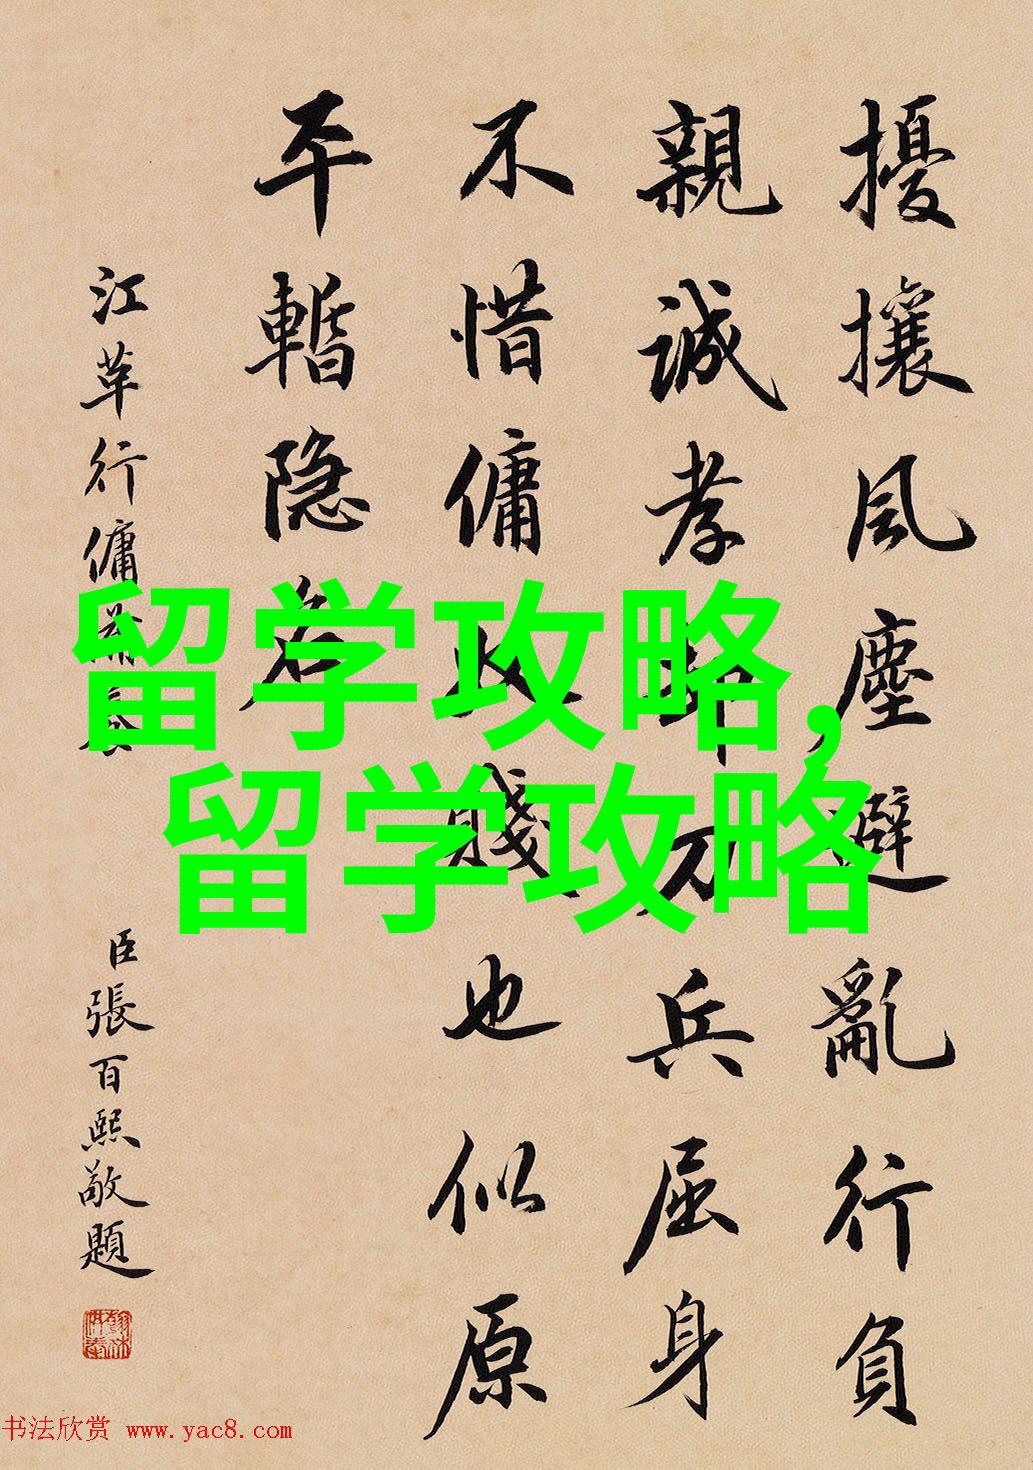 擾攘風塵避亂行負
親誠孝却刀兵屈身
不惜傭賤也似原
平暫隐名
江革行傭
臣張百熙敬題
留学攻略,
留学攻略
书法欣赏 www.yac8.com